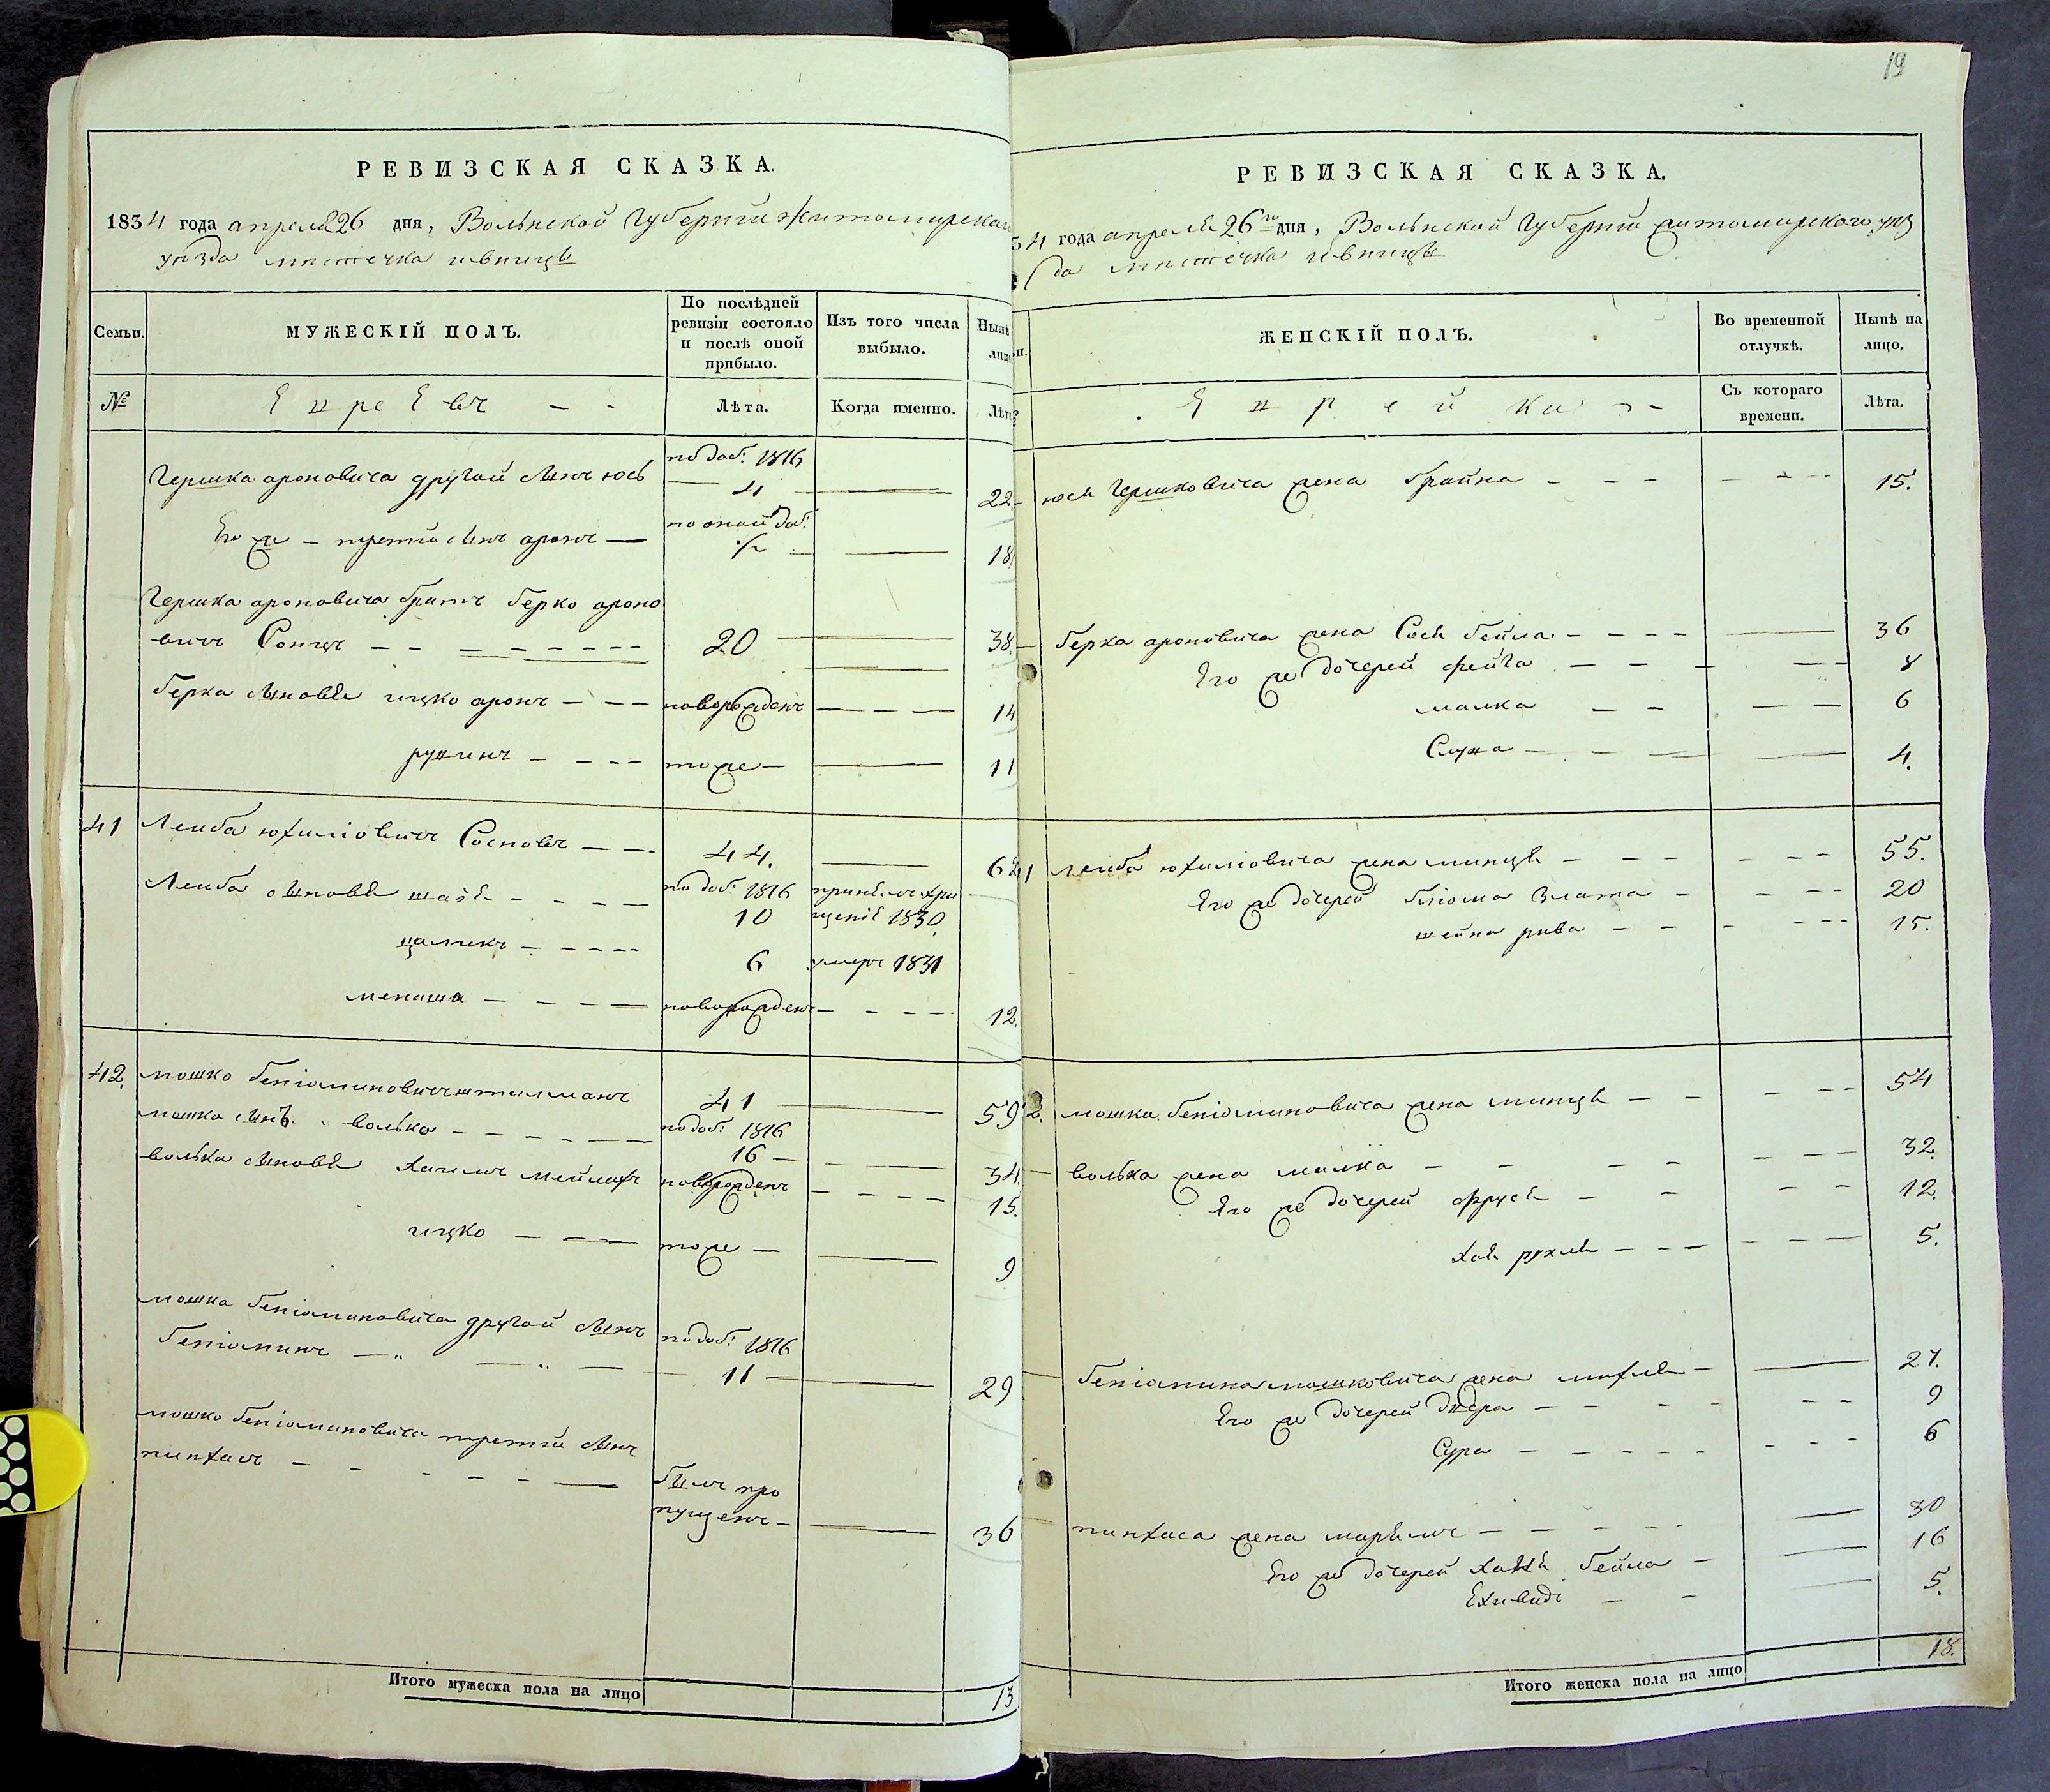 РЕВИЗСКАЯ СКАЗКА.
1834 года апреля 26 дня, Волынской Губернии Житомирскаго
уѣзда мѣстечка ивницы
Семьи.
МУЖЕСКІЙ ПОЛЪ.
По послѣдней
ревизіи состояло
и послѣ оной
прибыло.
Изъ того числа
выбыло.
Нынѣ
лицо
№
Евреевъ
Лѣта.
Когда именно.
Лѣта
Гершка ароновича другой сынъ юсь
по доб: 1816
4
22
Его же третій сынъ аронъ
по оной доб:
½
18
Гершка ароновича братъ берко ароно
вичъ Сонцъ
20
38
берка сыновья ицко аронъ
новорожденъ
14
рувинъ
тоже
11
41 Лейба юхимовичъ Сосновъ
44.
62
Лейба сыновья шая
по доб: 1816
10
принялъ хри
щеніе 1830
цаликъ
6
умеръ 1831
менаша
новорожден
12.
42. мошко беніаминовичъ штилманъ
41
59
мошка сынъ волько
по доб: 1816
16
34
волька сыновья хаимъ мейлахъ
новорожденъ
15.
ицко
тоже
9
мошка беніаминовича другой сынъ
беніаминъ
по доб: 1816
11
29
мошко беніаминовича третій сынъ
пинхасъ
былъ про
пущенъ
36
Итого мужеска пола на лицо
13
19
РЕВИЗСКАЯ СКАЗКА.
34 года апреля 26го дня, Волынской Губерніи житомирскаго уѣз
да мѣстечка ивницы
ЖЕНСКІЙ ПОЛЪ.
Во временной
отлучкѣ.
Нынѣ на
лицо.
Еврейки
Съ котораго
времени.
Лѣта.
юся Гершковича жена брайна
15.
берка ароновича жена Сося бейла
36
Его же дочерей фейга
8
малка
6
Слува
4.
41 лейба юхимовича жена минця
55.
Его же дочерей блюма злата
20
шейна рива
15.
2. мошка беніаминовича жена минця
54
волька жена малка
32.
Его же дочерей фруся
12.
хая рухля
5.
беніамина мошковича жена михля
27.
Его же дочерей двера
9
Сура
6
пинхаса жена марямъ
30
Его же дочерей хання бейла
16
Ехивидъ
5.
Итого женска пола на лицо
18.